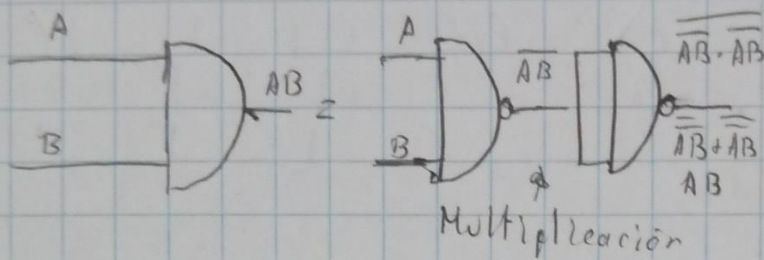 A
B
AB
=
A
B
\overline{AB}
\overline{\overline{AB} \cdot \overline{AB}}
\overline{\overline{AB}} + \overline{\overline{AB}}
AB
Multiplicación